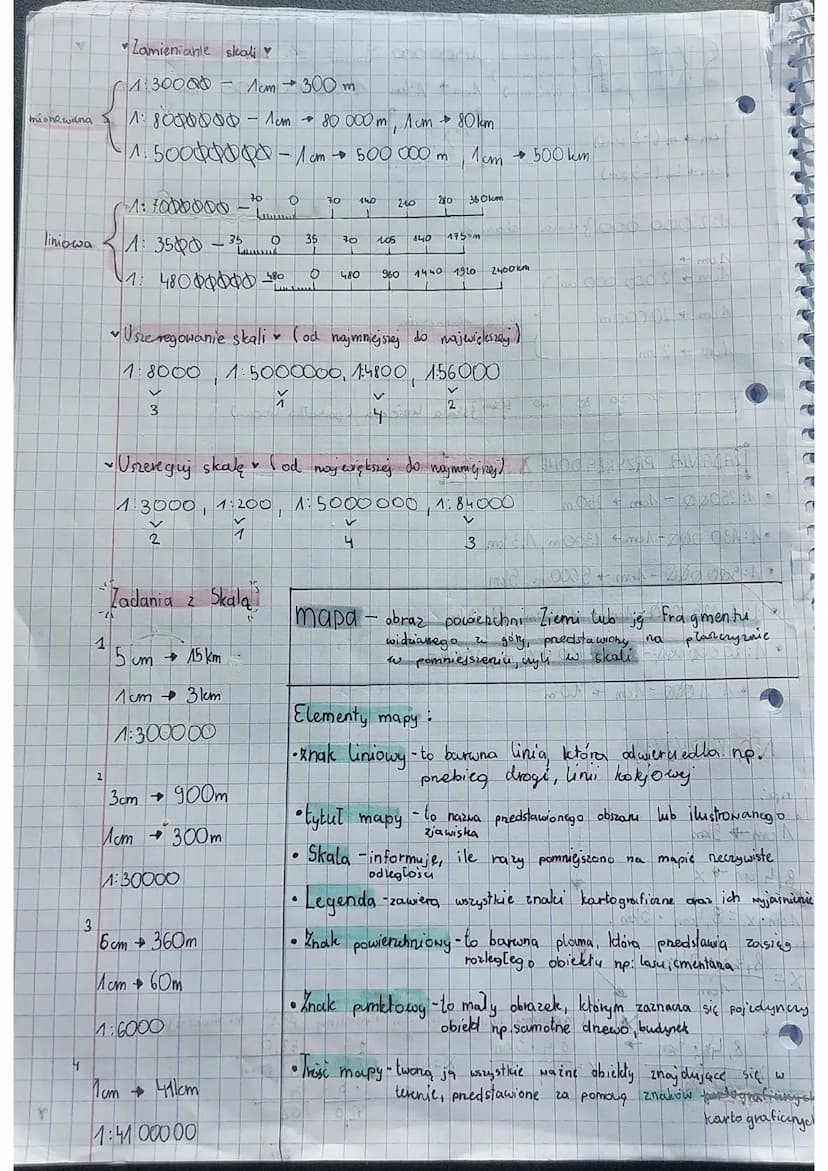 ♥ Zamienianie skali ♥
mianowana
1:30000 - 1cm → 300 m
1: 8000000 - 1cm → 80 000m, 1cm → 80km
1: 50000000 - 1cm → 500 000 m, 1cm → 500km
liniowa
1: 7000000 - 70 0 70 140 210 280 350km
1: 3500 - 35 0 35 70 105 140 175m
1: 48000000 - 480 0 480 960 1440 1920 2400km
♥ Uszeregowanie skali ♥ (od najmniejszej do największej)
1:8000, 1:5000000, 1:4800, 1:56000
3 1 4 2
♥ Uszereguj skalę ♥ (od największej do najmniejszej)
1:3000, 1:200, 1:5000000, 1:84000
2 1 4 3
Zadania z Skalą
1
5cm → 15km
1cm → 3km
1:300000
2
3cm → 900m
1cm → 300m
1:30000
3
6cm → 360m
1cm → 60m
1:6000
4
1cm → 41km
1:4100000
mapa - obraz powierzchni Ziemi lub jej fragmentu
widzianego z góry, przedstawiony na płaszczyźnie
w pomniejszeniu, czyli w skali
Elementy mapy:
• znak liniowy - to barwna linia, która odwierciedla np.
przebieg drogi, linii kolejowej
• tytuł mapy - to nazwa przedstawionego obszaru lub ilustrowanego
zjawiska
• Skala - informuje, ile razy pomniejszono na mapie rzeczywiste
odległości
• Legenda - zawiera wszystkie znaki kartograficzne oraz ich wyjaśnienie
• Znak powierzchniowy - to barwna plama, która przedstawia zasięg
rozległego obiektu np: lasu, cmentarza
• Znak punktowy - to mały obrazek, którym zaznacza się pojedynczy
obiekt np. samotne drzewo, budynek
• Treść mapy - tworzą ją wszystkie ważne obiekty znajdujące się w
terenie, przedstawione za pomocą znaków
kartograficznych